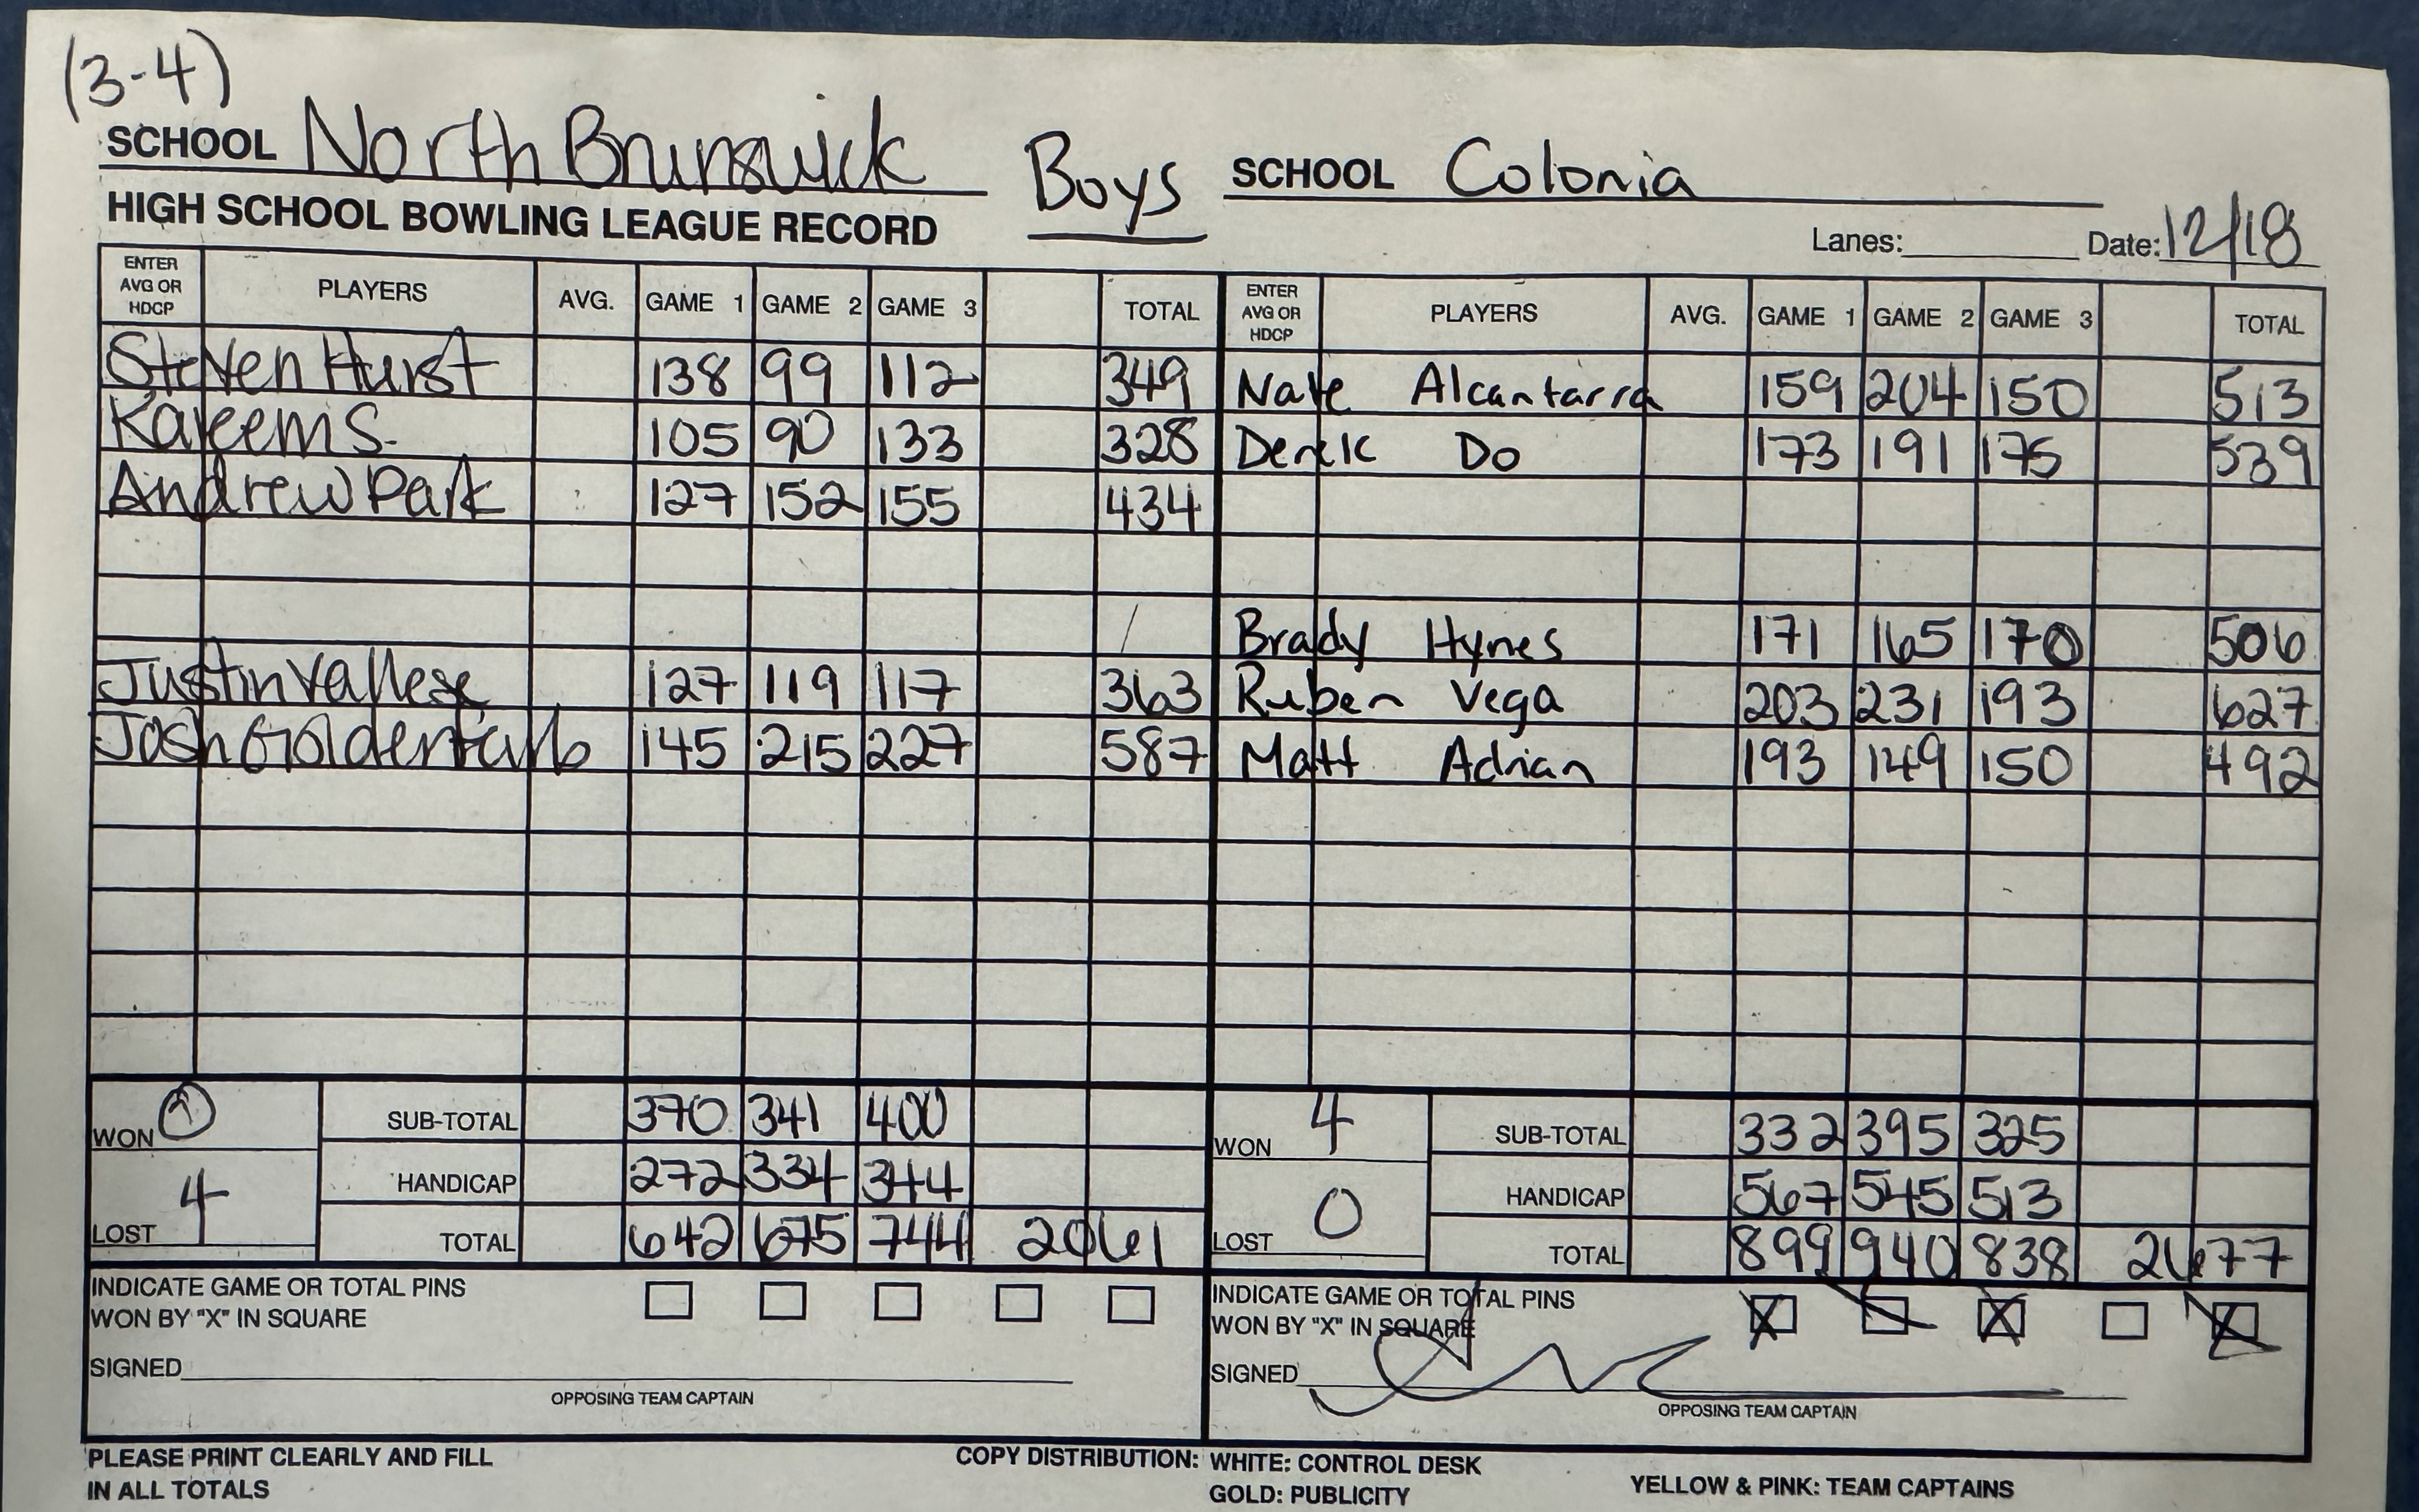 (3-4)
SCHOOL North Brunswick Boys SCHOOL Colonia
HIGH SCHOOL BOWLING LEAGUE RECORD Lanes: Date: 12/18
ENTER AVG OR HDCP PLAYERS AVG. GAME 1 GAME 2 GAME 3 TOTAL ENTER AVG OR HDCP PLAYERS AVG. GAME 1 GAME 2 GAME 3 TOTAL
Steven Hurst 138 99 112 349 Nate Alcantarra 159 204 150 513
Kareem S. 105 90 133 328 Derek Do 173 191 175 539
Andrew Park 127 152 155 434
Brady Hynes 171 165 170 506
Justin Vallese 127 119 117 363 Ruben Vega 203 231 193 627
Josh Goldenfarb 145 215 227 587 Matt Adrian 193 149 150 492
WON 0 SUB-TOTAL 370 341 400 WON 4 SUB-TOTAL 332 395 325
HANDICAP 272 334 344 HANDICAP 567 545 513
LOST 4 TOTAL 642 675 744 2061 LOST 0 TOTAL 899 940 838 2677
INDICATE GAME OR TOTAL PINS INDICATE GAME OR TOTAL PINS
WON BY "X" IN SQUARE WON BY "X" IN SQUARE X X X
SIGNED SIGNED
OPPOSING TEAM CAPTAIN OPPOSING TEAM CAPTAIN
PLEASE PRINT CLEARLY AND FILL COPY DISTRIBUTION: WHITE: CONTROL DESK YELLOW & PINK: TEAM CAPTAINS
IN ALL TOTALS GOLD: PUBLICITY